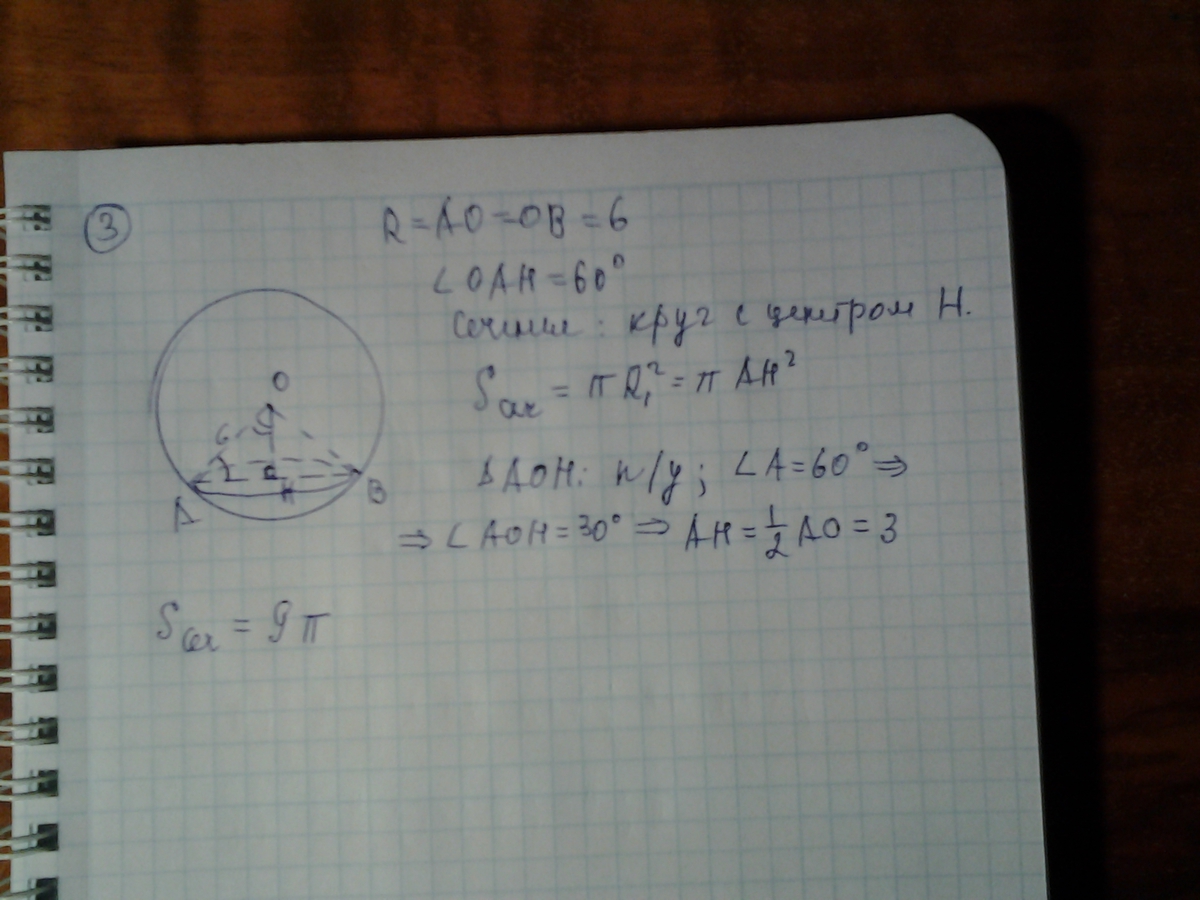 3
R = AO = OB = 6
∠OAH = 60°
Сечение: круг с центром H.
Sсеч = πR₁² = πAH²
ΔAOH: п/у; ∠A = 60° ⇒
⇒ ∠AOH = 30° ⇒ AH = 1/2 AO = 3
O
6
A
H
B
Sсеч = 9π